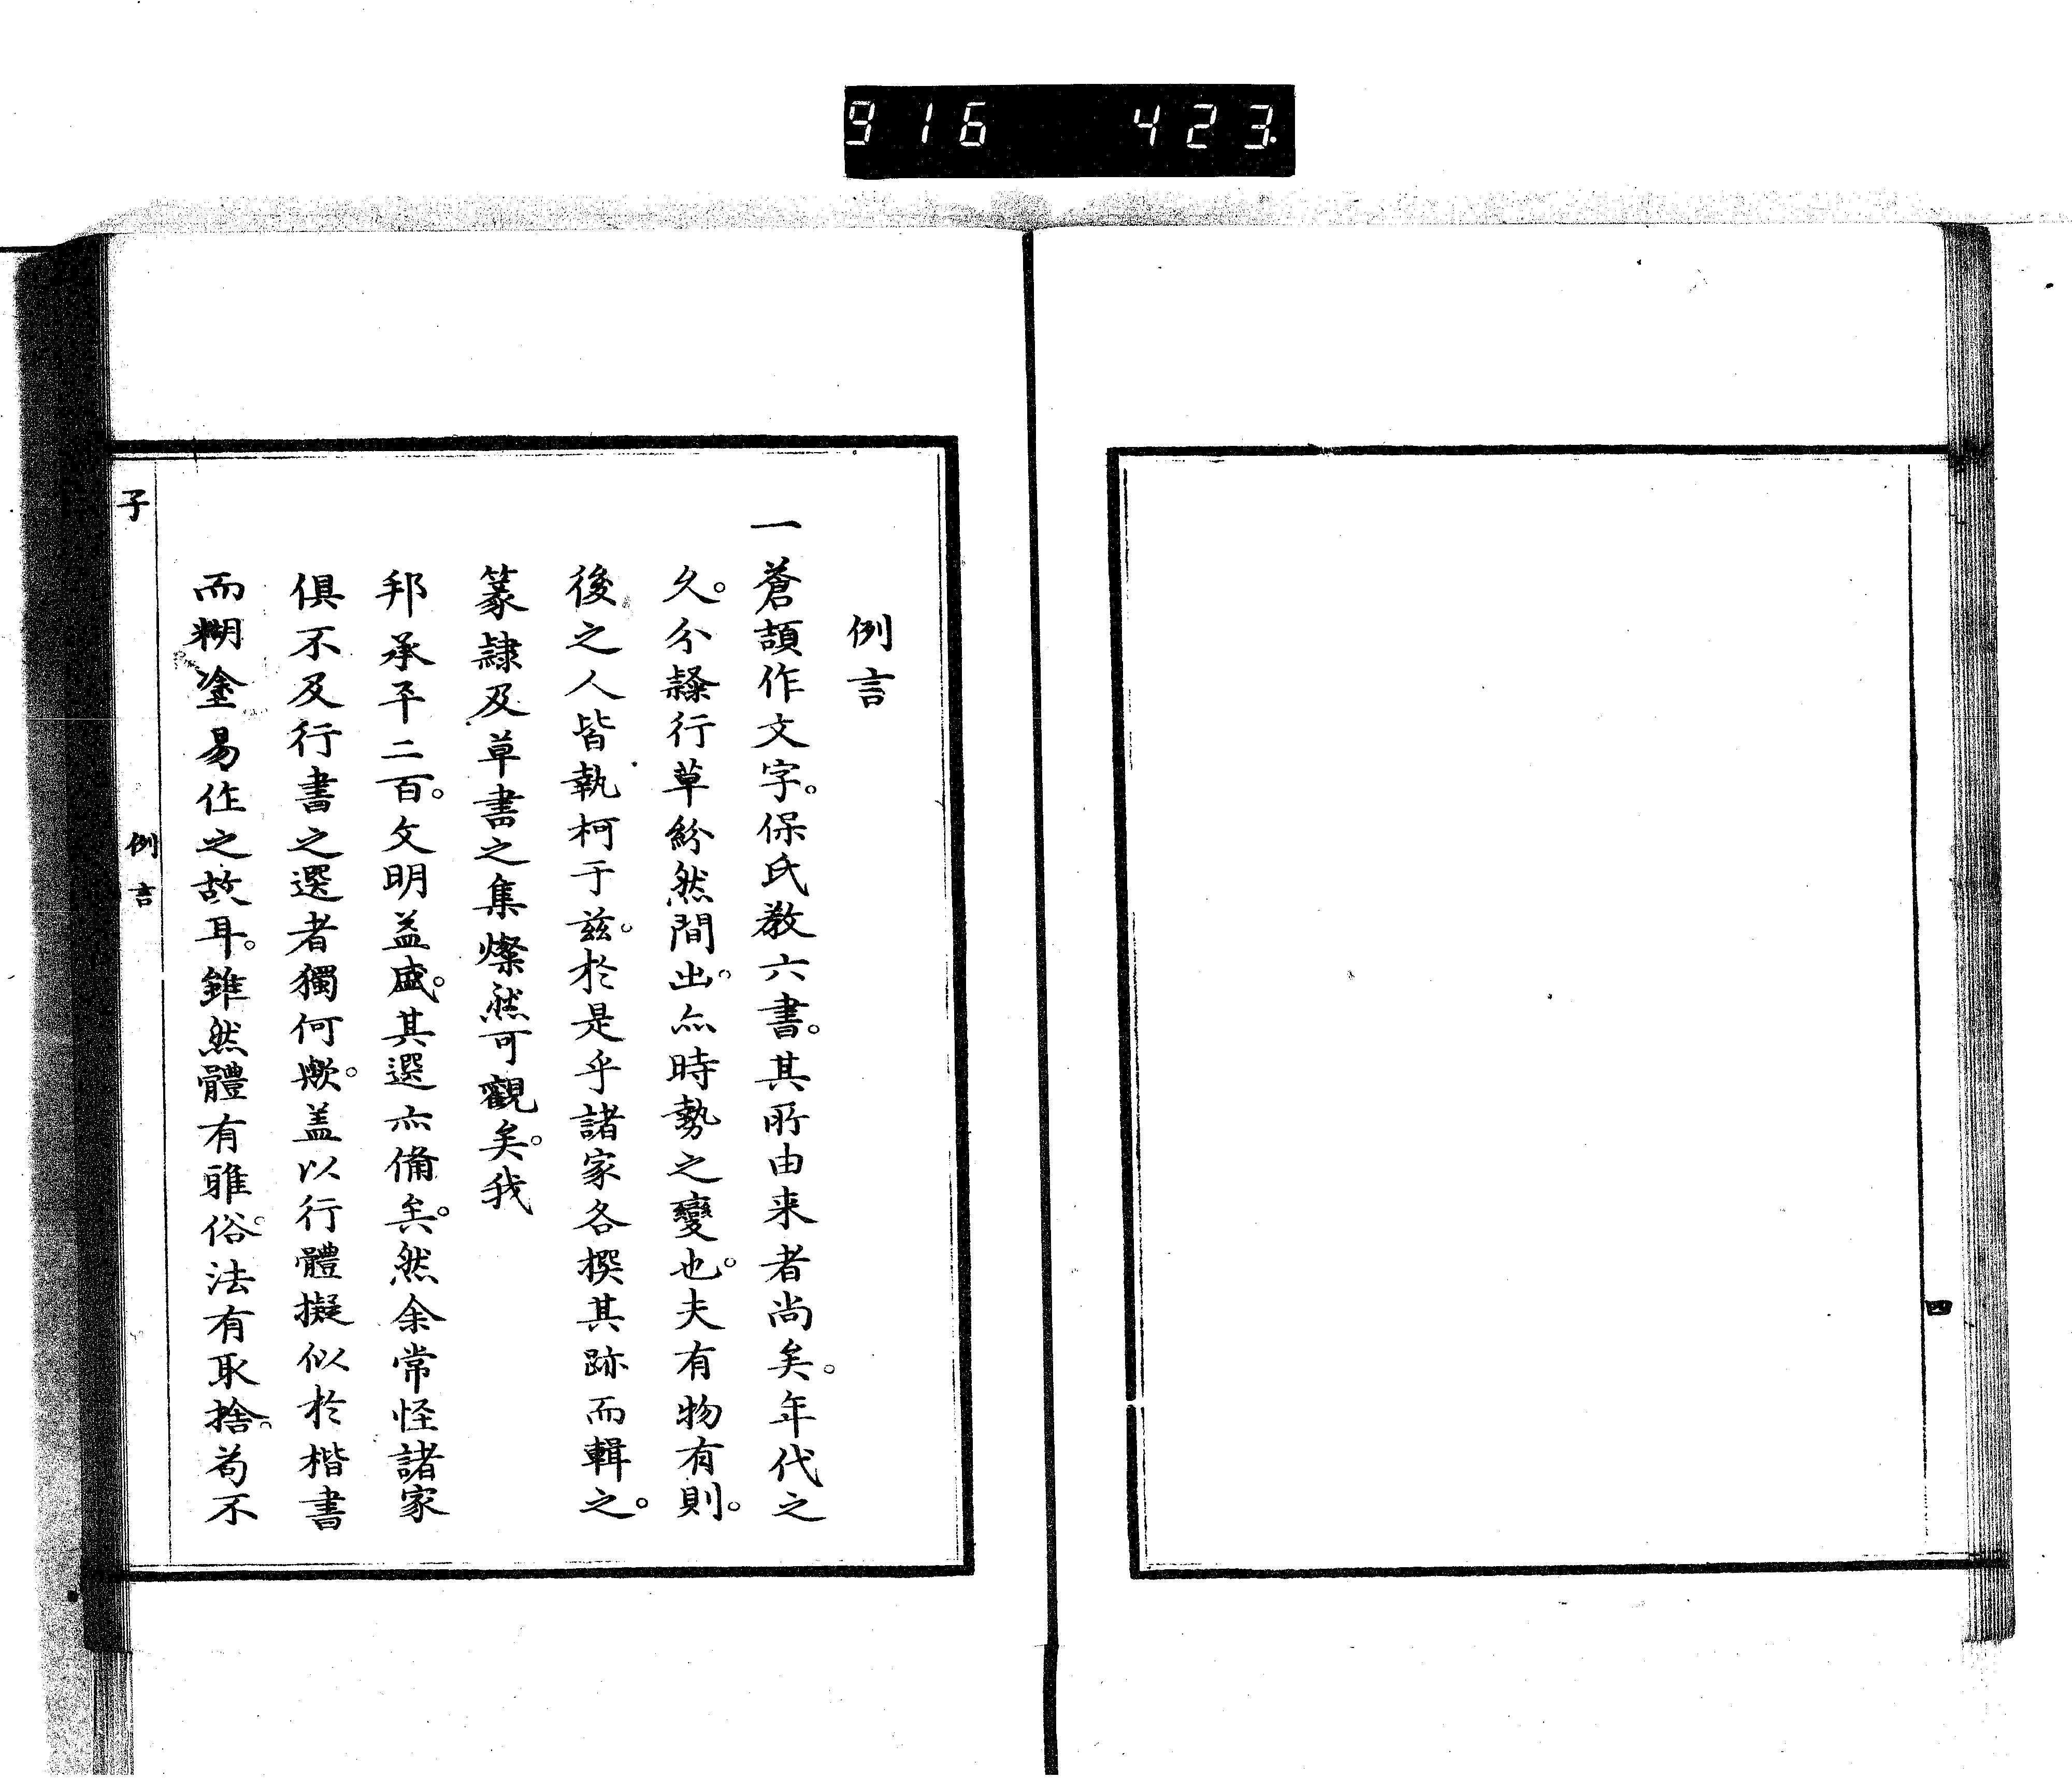 916 423.
四
例言
一蒼頡作文字。保氏教六書。其所由来者尚矣。年代之
久。分隸行草紛然間出。亦時勢之變也。夫有物有則。
後之人皆執柯于茲。於是乎諸家各撰其跡而輯之。
篆隷及草書之集燦然可觀矣。我
邦承平二百。文明益盛。其選亦備矣。然余常怪諸家
俱不及行書之選者獨何歟。蓋以行體擬似於楷書
而糊塗易作之故耳。雖然體有雅俗。法有取捨。苟不
子
例言